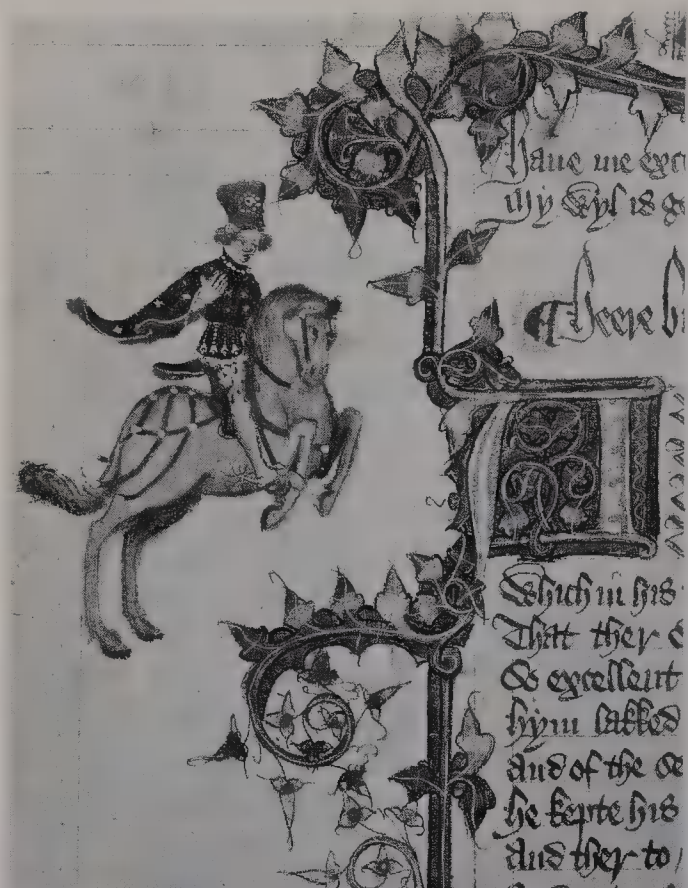 Haue me exc
My wyl is go
¶ Heere b
A
Which in his
That ther
So excellent
hym lakked
And of the se
he kepte his
And ther to /